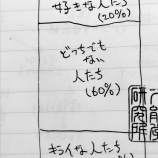 好きな人たち
(20%)
どっちでも
ない
人たち
(60%)
キライな人たち